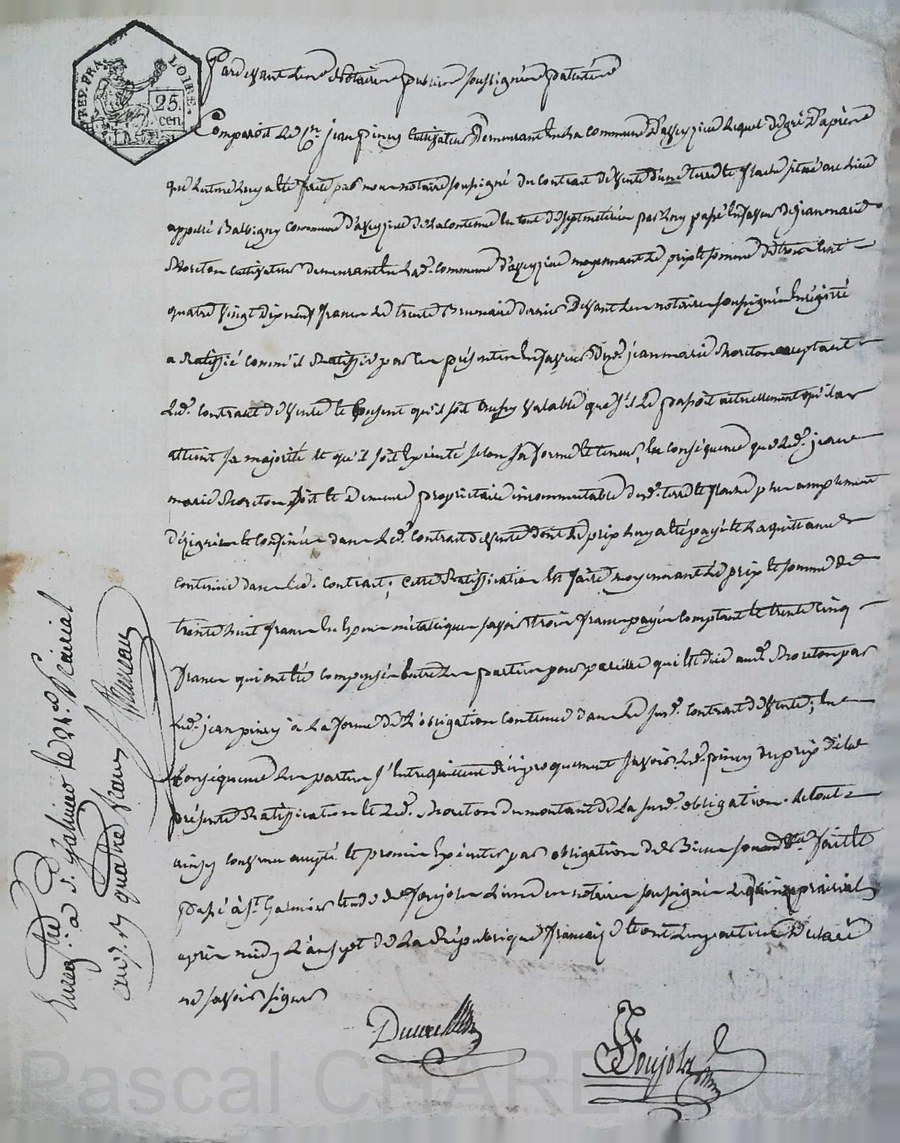 REP. FRA. LOIRE.
25.
cen.
Pardevant les notaires publics soussignés patentés
Comparoit le Cn. jean piney cultivateur demeurant en la commune d'aveyzieu lequel de gré d'après
que lecture luy a été faite par nous notaires soussigné du contrat de vente d'une terre et flache située au lieu
appellé Balbigny commune d'aveyzieu de la contenue en tout de sept meterées par luy passé en faveur de jean marie
Moreton cultivateur demeurant en lad. commune d'aveyzieu moyennant le prix et somme de trois cent
quatre vingt dix neuf francs le trente Brumaire dernier devant les notaires soussignés enrégistré
a Ratiffié comm'il Ratiffie par les présentes en faveur dud. jean marie Moreton acceptant
led. contrat de vente et Consent qu'il soit aussy valable que s'il le passoit actuellement qu'il a
atteint sa majorité et qu'il soit exécuté selon sa forme et teneur, en conséquence que led. jean
marie Moreton soit et demeure propriétaire incommutable desd. terre et flache plus amplement
désignés et confinés dans led. contrat de vente dont le prix luy a été payé et la quittance
contenue dans led. contrat; cette Ratiffication est faite moyennant le prix et somme de
trente huit francs en espèces métalliques savoir trois francs payés comptant et trente cinq
francs qui ont été compensés entre les parties pour pareille qui est due aud. Moreton par
led. jean piney à la forme de l'obligation contenue dans le susd. contrat de vente; en
Conséquence les parties s'entrequittent réciproquement savoir led. piney du prix de la
présente Ratiffication et led. Moreton du montant de la susd. obligation. Le tout
ainsy convenu accepté et promis exécuter par obligation de Biens
passé à St. Galmier étude de Poujols l'un des notaires soussignés le quinze prairial
après midy l'an sept de la République française et ont les parties déclaré
ne savoir signer
Poujols
Enreg. à S. galmier le 24 Prairial
an 7. quatre francs